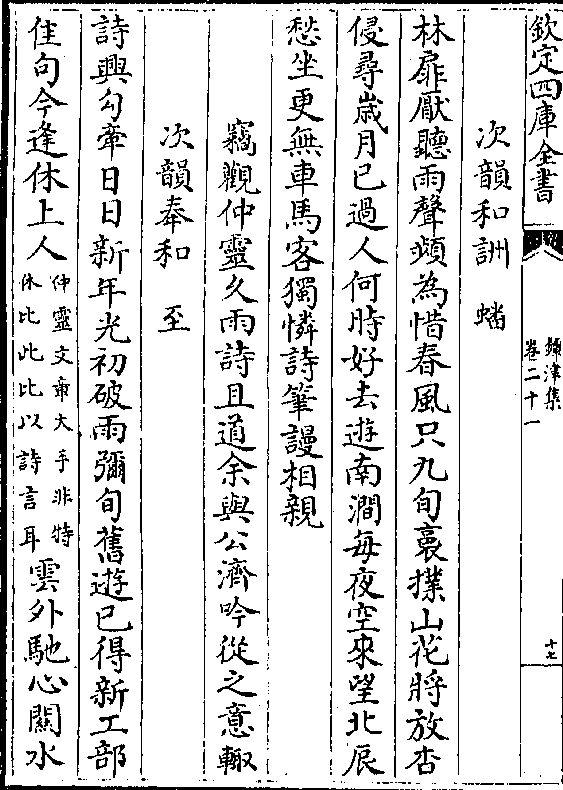 欽定四庫全書
鐔津集
卷二十一
十七
次韻和詶 蟠
林扉厭聽雨聲頻為惜春風只九旬裛撲山花將放杏
侵尋歲月已過人何時好去遊南澗每夜空來望北辰
愁坐更無車馬客獨憐詩筆謾相親
竊觀仲靈久雨詩且道余與公濟吟從之意輙
次韻奉和 至
詩興勾牽日日新年光初破雨彌旬舊遊已得新工部
佳句今逢休上人
仲靈文章大手非特
休比此比以詩言耳
雲外馳心關水